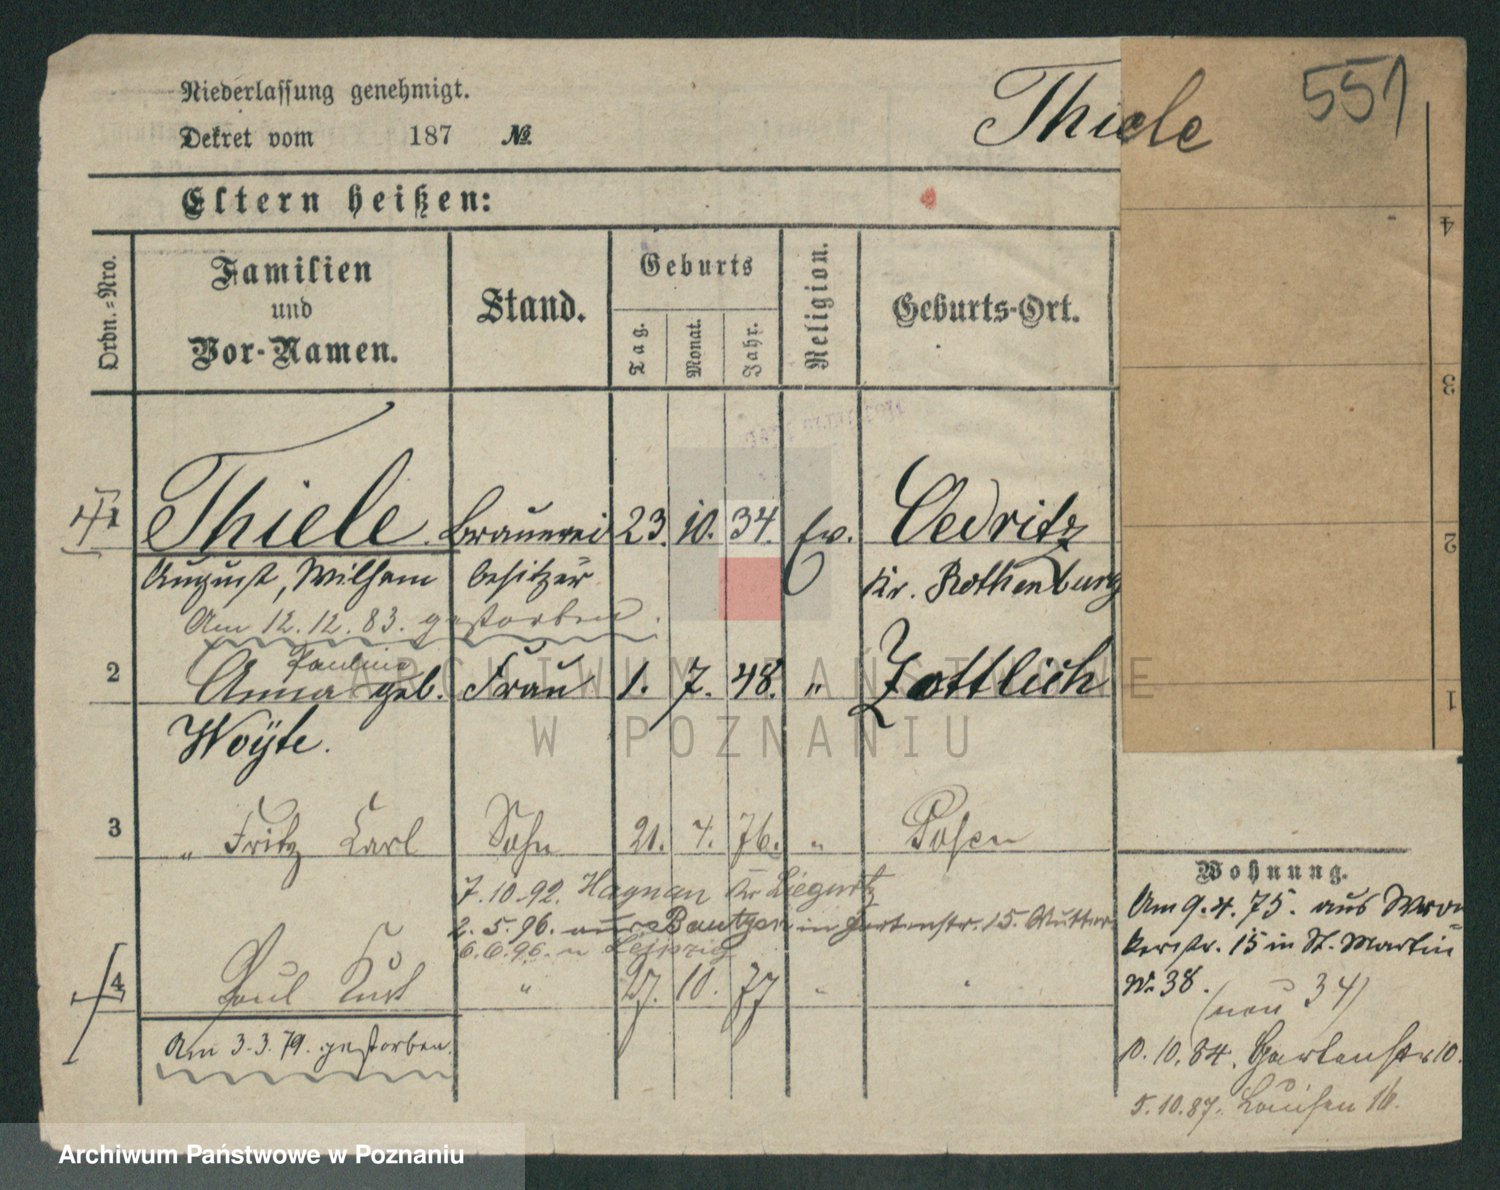 Niederlassung genehmigt.
Dekret vom 187 №
Thiele
551
Eltern heißen:
Ordn.-Nro.
Familien
und
Vor-Namen.
Stand.
Geburts
Tag.
Monat.
Jahr.
Religion.
Geburts-Ort.
4
3
2
1
1 Thiele Brauerei 23. 10. 34. Ev. Oedritz
August, Wilhelm besitzer Kr. Rothenburg
Am 12.12.83. gestorben.
Pauline
2 Anna geb. Frau 1. 7. 48. " Zottlich
Woÿte.
3 " Fritz Carl Sohn 21. 4. 76. " Posen
7.10.92. Haynau Kr Liegnitz
2.5.96. aus Bautzen in Gartenstr. 15. Mutter
6.6.96. n Leipzig
4 Paul Kurt " 27. 10. 77 " "
Am 3.3.79. gestorben.
Wohnung.
Am 9.4.75. aus
str. 15 in St. Martin
No 38.
(neu 34)
10.84. Gartenstr 10.
5.10.87. Louisen 16.
ARCHIWUM PAŃSTWOWE
W POZNANIU
Archiwum Państwowe w Poznaniu